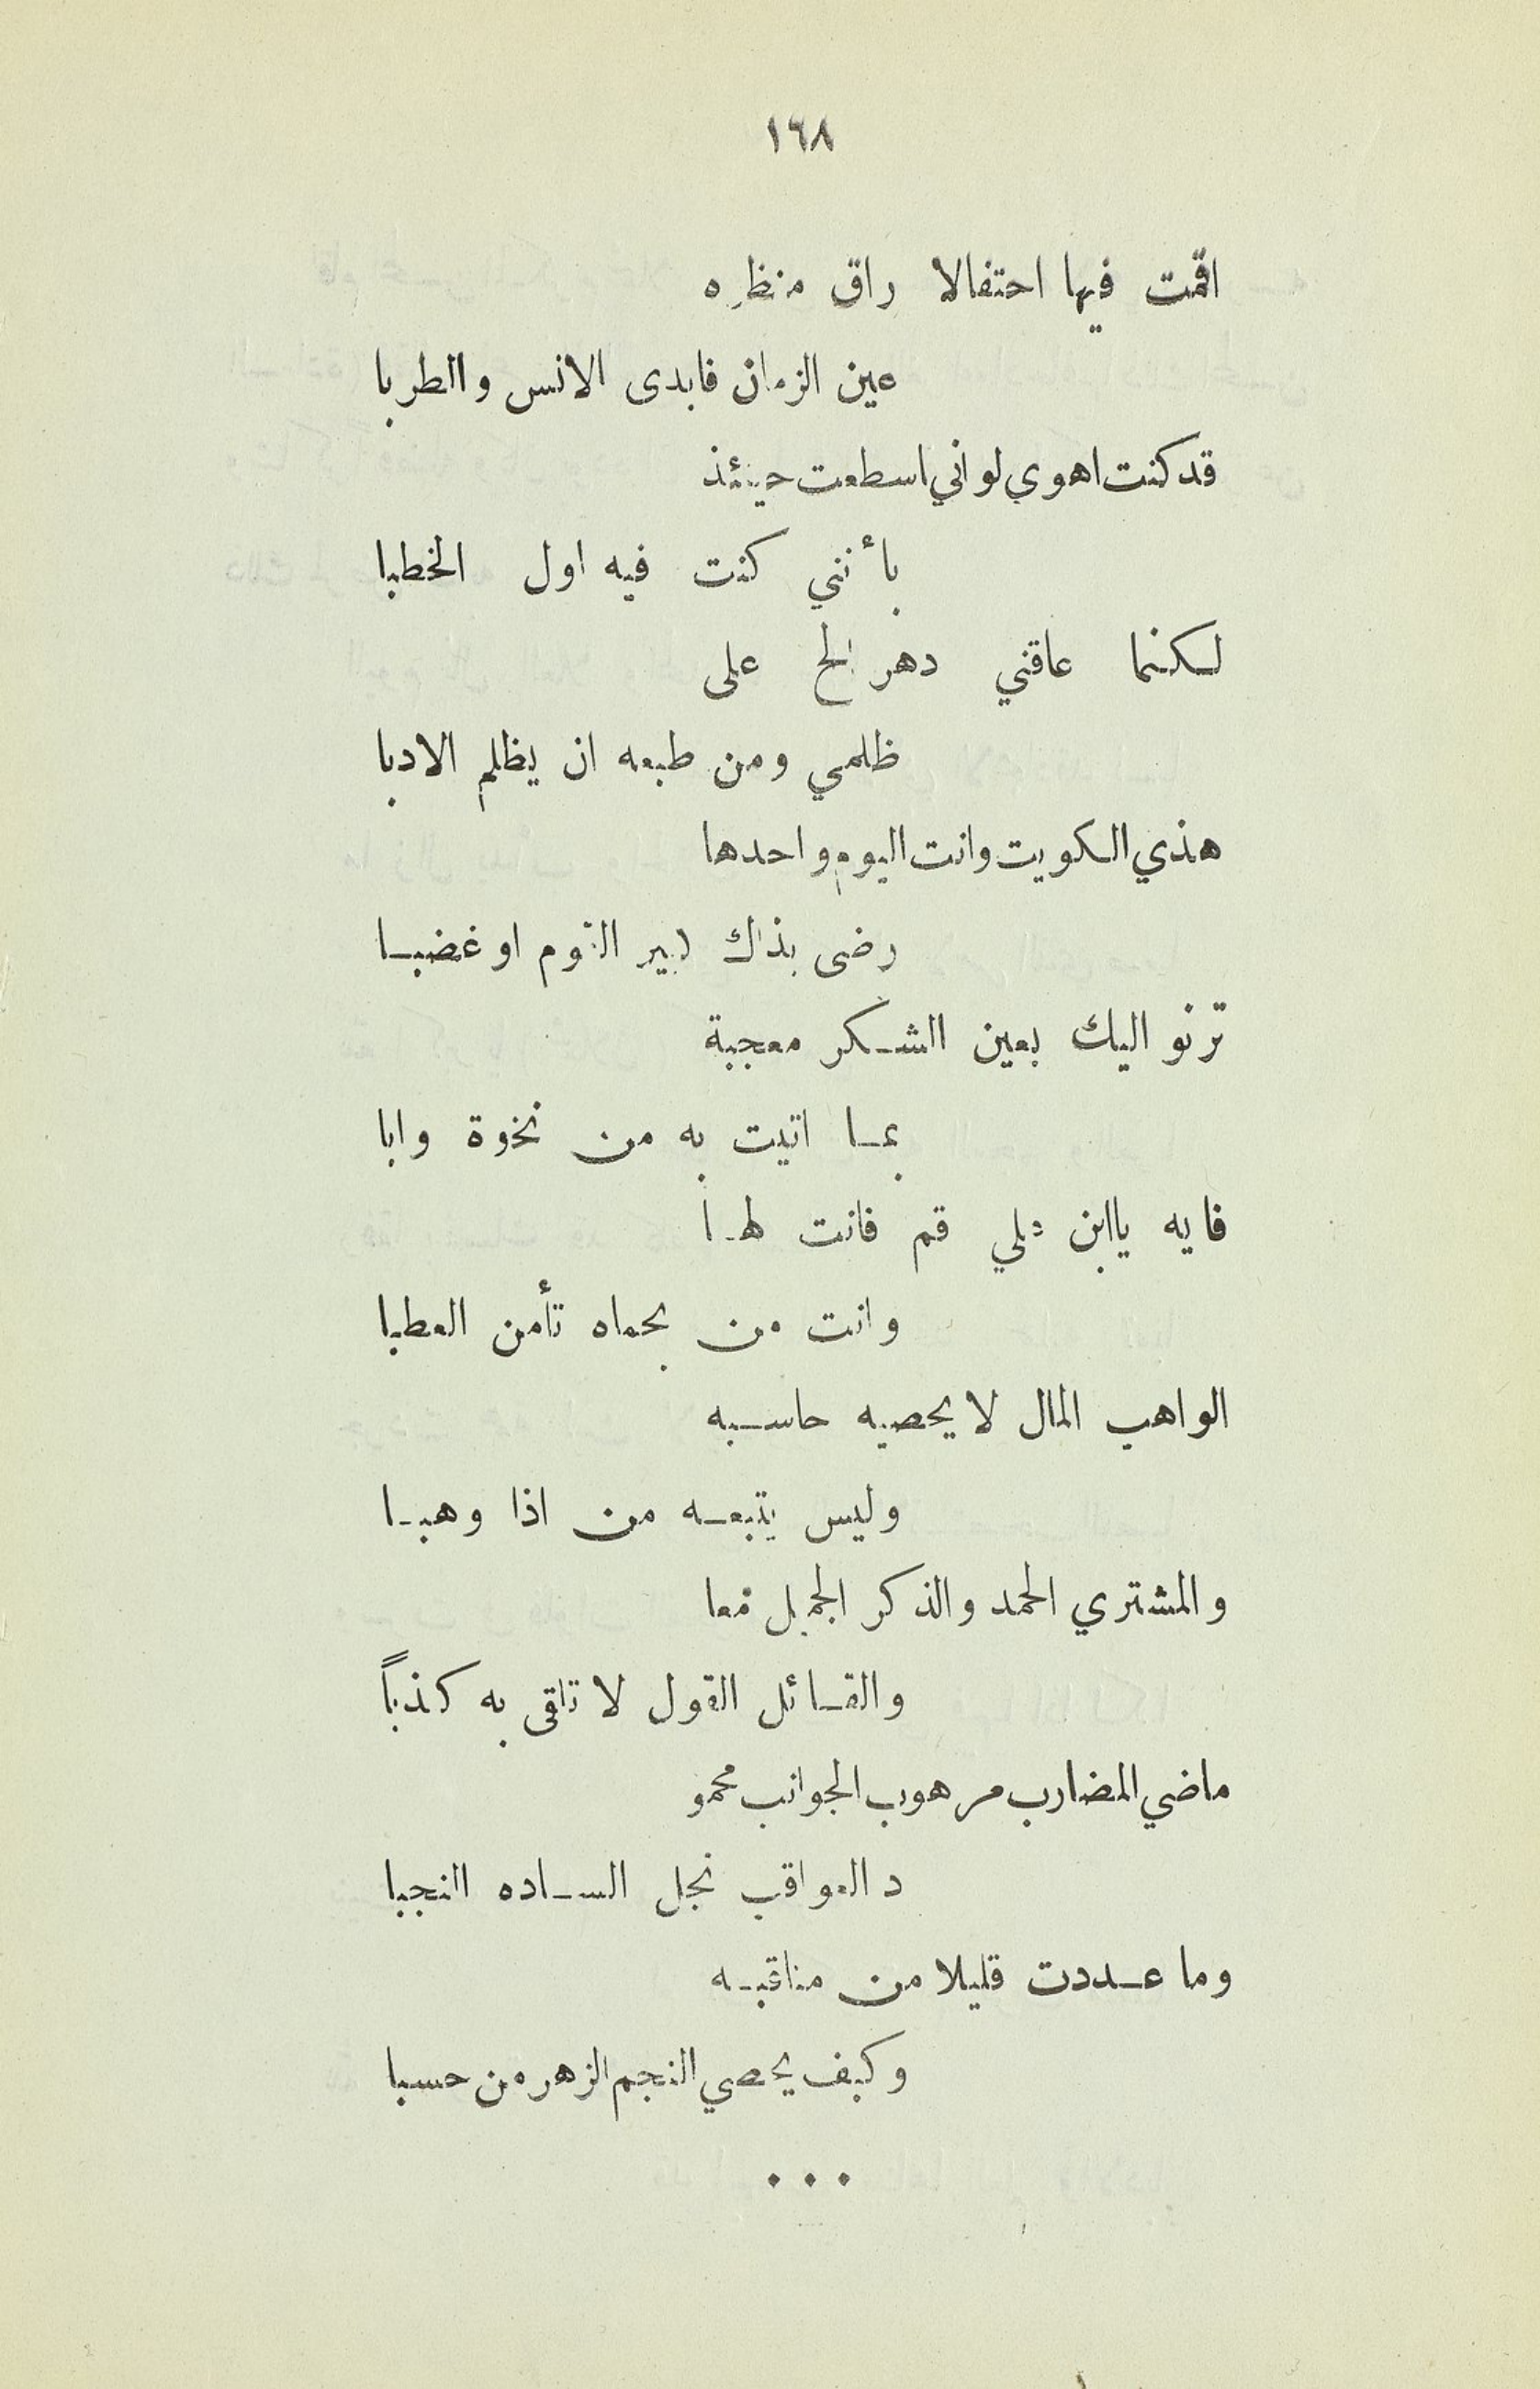 ١٦٨
اقمت فيها احتفالا راق منظره
عين الزمان فابدى الانس والطربا
قد كنت اهوي لو اني اسطعت حينئذ
بأنني كنت فيه اول الخطبا
لكنما عاقني دهر الح على
ظلمي ومن طبعه ان يظلم الادبا
هذي الكويت وانت اليوم واحدها
رضى بذاك كبير القوم او غضبا
ترنو اليك بعين الشكر معجبة
بما اتيت به من نخوة وابا
فايه ياابن علي قم فانت لها
وانت من بحماه تأمن العطبا
الواهب المال لا يحصيه حاسبه
وليس يتبعه من اذا وهبا
والمشتري الحمد والذكر الجميل معا
والقائل القول لا تلقى به كذباً
ماضي المضارب مرهوب الجوانب محمو
د العواقب نجل الساده النجبا
وما عددت قليلا من مناقبه
وكيف يحصي النجم الزهر من حسبا
...